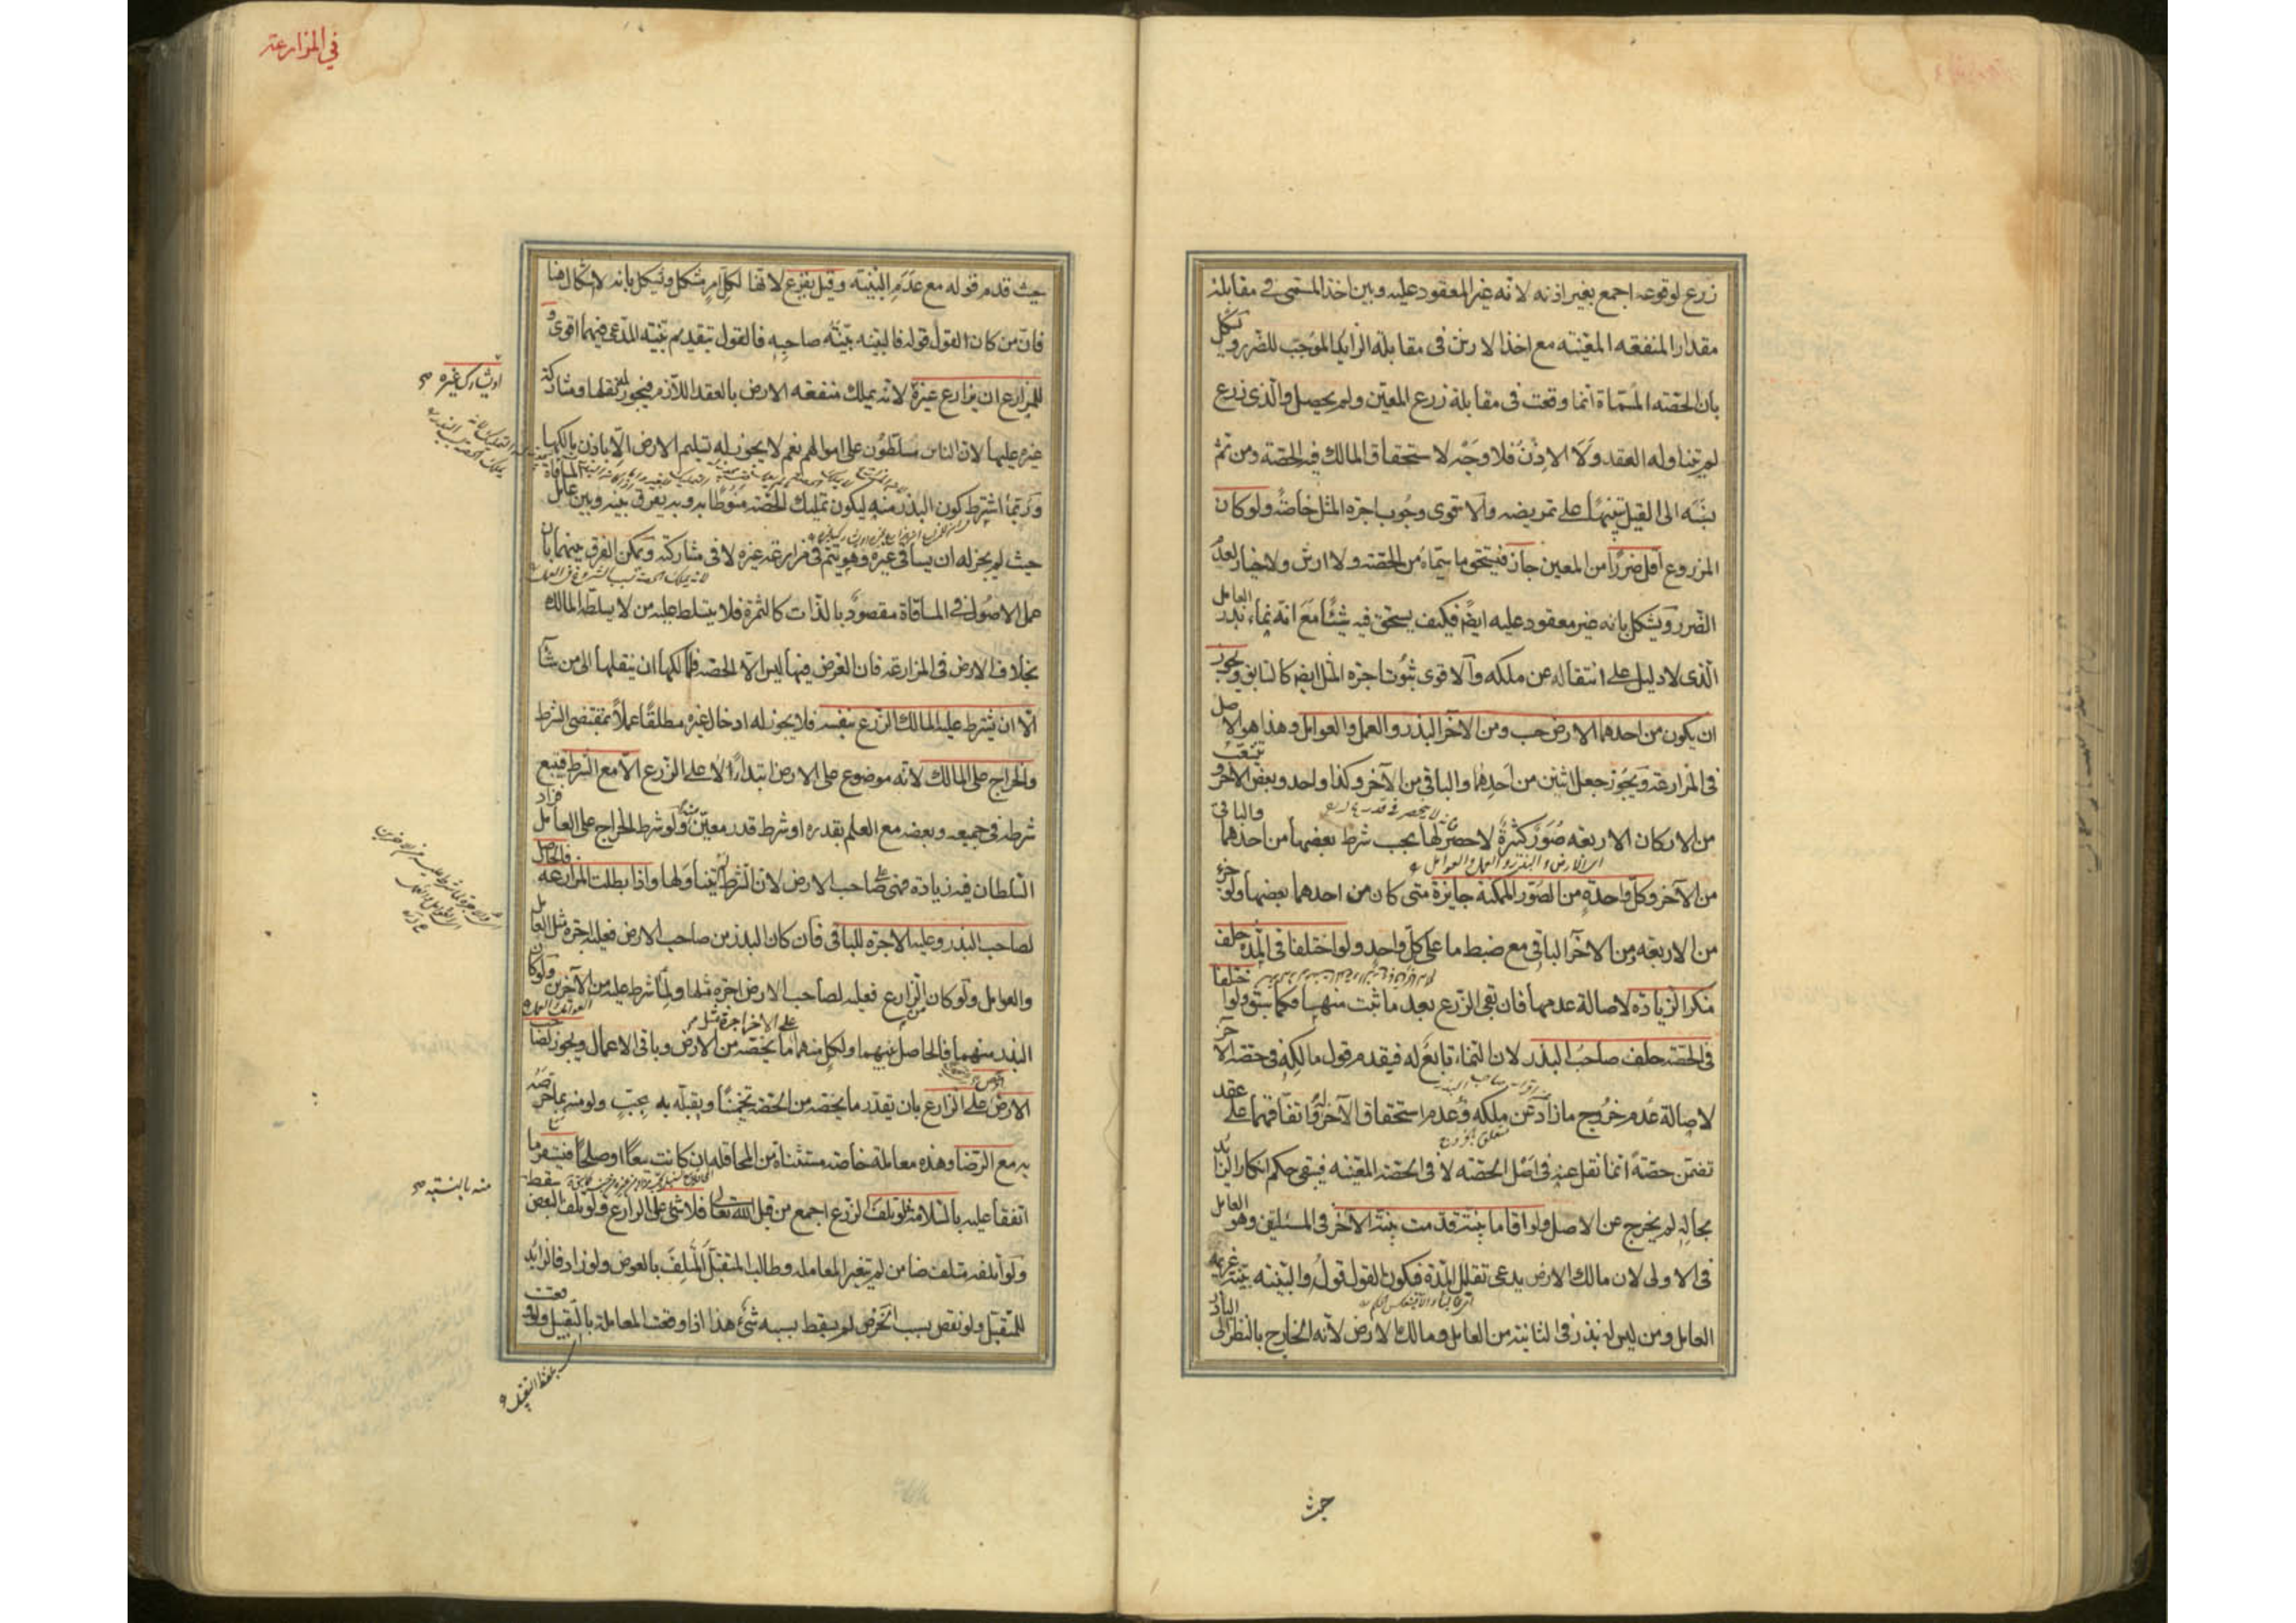 زرع لوقوعه اجمع بغير اذنه لانه غير المعقود عليه وبين اخذ المسمى في مقابلة
مقدار المنفعه المعينه مع اخذ الارش في مقابلة الزايد الموجب للضرر ويشكل
بان الحصه المسماة انما وقعت في مقابلة زرع المعين ولم يحصل والذى زرع
لم يتناوله العقد ولا الاذن فلا وجه لاستحقاق المالك فيه الحصة ومن ثم
نسبه الى القيل تنبيها على تمريضه والاقوى وجوب اجرة المثل خاصة ولو كان
المزروع اقل ضررا من المعين جاز فيستحق ما سماه من الحصته ولا ارش ولا خيار لعدم
الضرر ويشكل بانه غير معقود عليه ايضا فكيف يستحق فيه شيئا مع انه نماء بذر العامل
الذى لا دليل على انتقاله عن ملكه والاقوى ثبوت اجرة المثل ايضا كالسابق ويجوز
ان يكون من احدهما الارض حسب ومن الاخر البذر والعمل والعوامل وهذا هو الاصل
فى المزارعة ويجوز جعل اثنين من احدهما والباقى من الآخر وكذا واحد وبعض الاخر ويتشعب
من الاركان الاربعه صور كثيرة لا حصر لها بحسب شرط بعضها من احدهما والباقى
من الآخر وكل واحدة من الصور الممكنة جايزة متى كان من احدهما بعضها ولو جزء
من الاربعه ومن الآخر الباقى مع ضبط ما على كل واحد ولو اختلفا فى المدة حلف
منكر الزيادة لاصالة عدمها فان بقى الزرع بعد ما ثبت منها فكما سبق ولو اختلفا
فى الحصة حلف صاحب البذر لان النماء تابع له فيقدم قول مالكه فى حصة الآخر
لاصالة عدم خروج ما زاد عن ملكه وعدم استحقاق الآخر له واتفاقهما على عقد
تضمن حصة انما نقل عنه فى اصل الحصته لا فى الحصه المعينه فيبقى حكم انكار الزائد
بحاله لم يخرج عن الاصل ولو اقاما بينة قدمت بينة الآخر فى المسئلتين وهو العامل
فى الاولى لان مالك الارض يدعى تقليل المدة فيكون القول قوله والبينه بينة غريمه
العامل ومن ليس له بذر فى الثانية من العامل ومالك الارض لانه الخارج بالنظر الى الباذر
حيث
في المزارعة
حيث قدم قوله مع عدم البينه وقيل يقرع لانها لكل امر مشكل ويشكل بانه لا اشكال هنا
فان من كان القول قوله فالبينه بينة صاحبه فالقول بتقديم بينه المدعى فيهما اقوى و
للمزارع ان يزارع غيره لانه يملك منفعه الارض بالعقد اللازم فيجوز له نقلها ومشاركة
او يشارك غيره صح
غيره عليها لان الناس مسلطون على اموالهم نعم لا يجوز له تسليم الارض الا باذن مالكها
وربما اشترط كون البذر منه ليكون تمليك الحصه منوطا به وبه يفرق بينه وبين عامل المساقاة
حيث لم يجز له ان يساقى غيره وهو يتم فى مزارعة غيره لا فى مشاركته ويمكن الفرق بينهما بان
عمل الاصول فى المساقاة مقصود بالذات كالثمرة فلا يتسلط عليه من لا يسلطه المالك
بخلاف الارض فى المزارعة فان الغرض فيها ليس الا الحصه فلمالكها ان ينقلها الى من شآ
الا ان يشترط عليه المالك الزرع بنفسه فلا يجوز له ادخال غيره مطلقا عملا بمقتضى الشرط
والخراج على المالك لانه موضوع على الارض ابتداء لا على الزرع الا مع الشرط فيتبع
شرطه فى جميعه وبعضه مع العلم بقدره او شرط قدر معين منه ولو شرط الخراج على العامل فزاد
السلطان فيه زيادة فهى على صاحب الارض لان الشرط لم يتناولها واذا بطلت المزارعه فالحاصل
لصاحب البذر وعليه الاجرة للباقى فان كان البذر من صاحب الارض فعليه اجرة مثل العامل
والعوامل ولو كان من الزارع فعليه لصاحب الارض اجرة مثلها ولما شرط عليه من الآخرين ولو كان
البذر منهما فالحاصل بينهما ولكل منهما على الاخر اجرة مثل ما يخصه من الارض وباقى الاعمال ويجوز لصاحب
الارض الخرص على الزارع بان يقدر ما يخصه من الحصه تخمينا ويقبله به بحب ولو منه بما خرصه
به مع الرضا وهذه معاملة خاصه مستثناة من المحاقله ان كانت بيعا او صلحا فيستقر ما
منه بالنسبه صح
اتفقا عليه بالسلامة فلو تلف الزرع اجمع من قبل الله تعالى فلا شئ على الزارع ولو تلف البعض سقط
ولو اتلفه متلف ضامن لم تتغير المعامله وطالب المتقبل المتلف بالعوض ولو زاد فالزايد
للمتقبل ولو نقص بسبب الخرص لم يسقط بسببه شئ هذا اذا وقعت المعاملة بالتقبيل ولو وقعت
بلفظ التقبيل